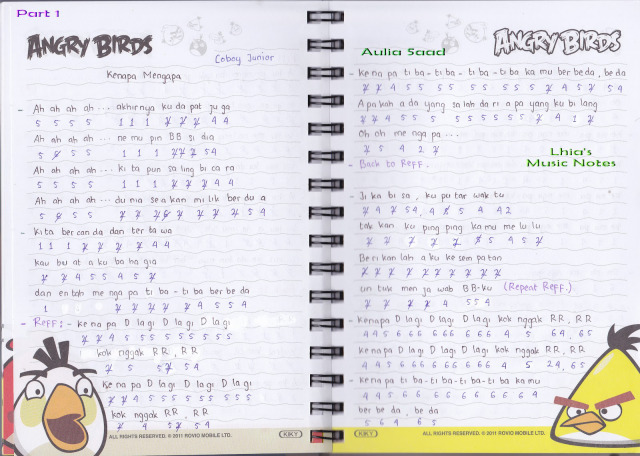 Part 1
ANGRY BIRDS
Coboy Junior
Kenapa Mengapa
- Ah ah ah ah ... akhirnya ku da pat ju ga
5 5 5 5 1 1 1 7 7 7 4 4
Ah ah ah ah ... ne mu pin BB si dia
5 5 5 5 1 1 1 7 7 7 5 4
Ah ah ah ah ... ki ta pun sa ling bi ca ra
5 5 5 5 1 1 1 7 7 7 4 4
Ah ah ah ah ... du nia se a kan mi lik ber du a
- Ki ta ber can da dan ter ta wa
1 1 1 7 7 7 7 4 4
kau bu at a ku ba ha gia
dan en tah me nga pa ti ba - ti ba ber be da
- Reff :- ke na pa D la gi D la gi D la gi
kok nggak RR , RR
Ke na pa D la gi D la gi D la gi
kok nggak RR , RR
ALL RIGHTS RESERVED. © 2011 ROVIO MOBILE LTD.
KIKY
Aulia Saad
ANGRY BIRDS
- Ke na pa ti ba - ti ba - ti ba - ti ba ka mu ber be da , be da
A pa kah a da yang sa lah da ri a pa yang ku bi lang
Oh oh me nga pa ....
- Back to Reff.
Lhia's
Music Notes
- Ji ka bi sa , ku pu tar wak tu
tak kan ku ping ping ka mu me lu lu
Be ri kan lah a ku ke sem pa tan
un tuk men ja wab BB-ku (Repeat Reff.)
- Kenapa D lagi D lagi D lagi kok nggak RR, RR
4 4 5 6 6 6 6 6 6 6 6 4 5 6 4, 6 5
Kenapa D lagi D lagi D lagi kok nggak RR, RR
4 4 5 6 6 6 6 6 6 6 6 4 5 2 4, 6 5
- Ke na pa ti ba - ti ba - ti ba - ti ba ka mu
4 4 5 6 6 6 6 6 6 6 6 6 4
ber be da , be da
5 6 4 6 5
KIKY
ALL RIGHTS RESERVED. © 2011 ROVIO MOBILE LTD.